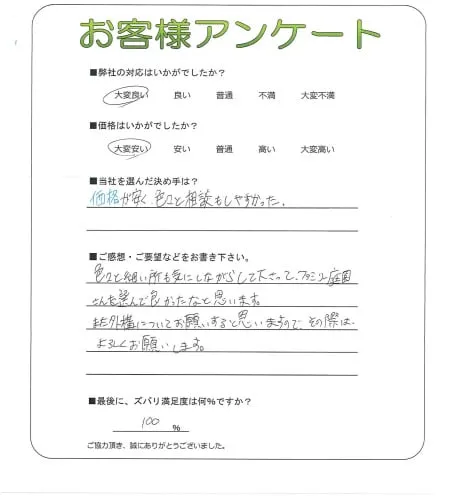 お客様アンケート
■弊社の対応はいかがでしたか？
大変良い 良い 普通 不満 大変不満
■価格はいかがでしたか？
大変安い 安い 普通 高い 大変高い
■当社を選んだ決め手は？
価格が安く、色々と相談もしやすかった。
■ご感想・ご要望などをお書き下さい。
色々と細い所も気にしながらして下さって、ファミリー庭園
さんを選んで良かったなと思います。
また外構についてお願いすると思いますので、その際は、
よろしくお願いします。
■最後に、ズバリ満足度は何％ですか？
100 %
ご協力頂き、誠にありがとうございました。